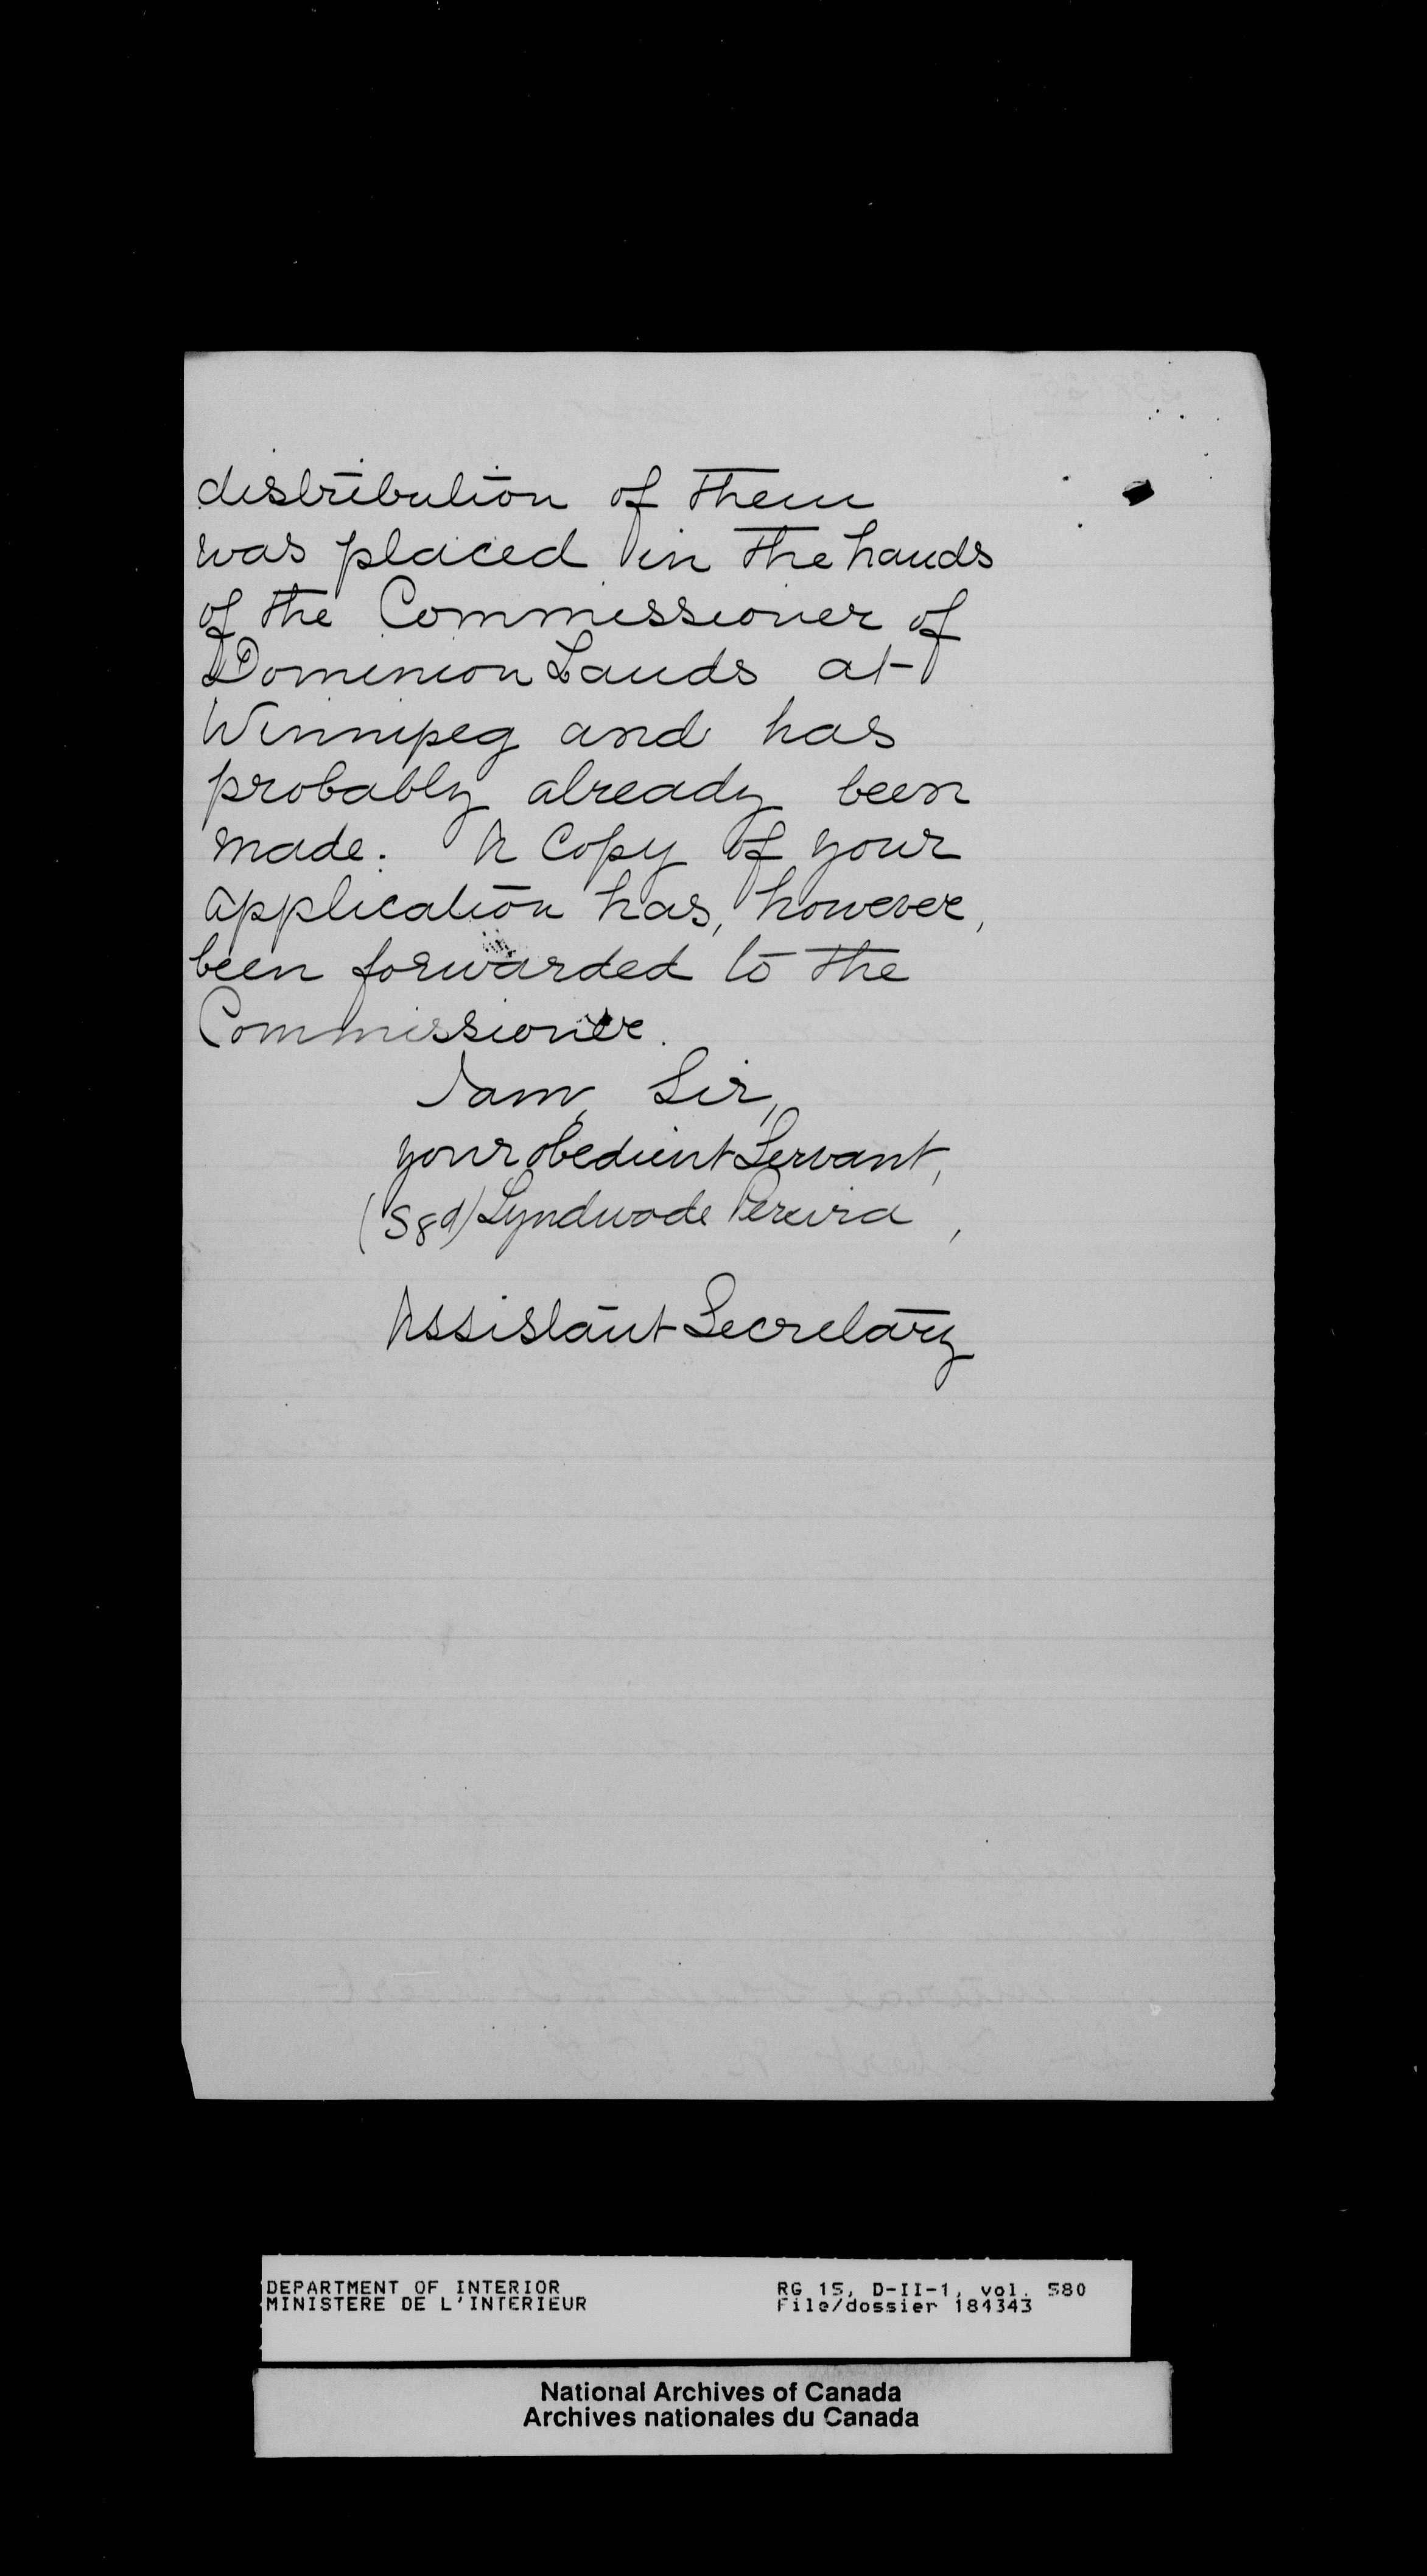 distribution of them
was placed in the hands
of the Commissioner of
Dominion Lands at
Winnipeg and has
probably already been
made. A Copy of your
application has, however,
been forwarded to the
Commissioner.
I am, Sir,
your obedient Servant,
(Sgd) Lyndwode Pereira,
Assistant Secretary
DEPARTMENT OF INTERIOR
MINISTERE DE L'INTERIEUR
RG 15, D-II-1, vol. 580
File/dossier 184343
National Archives of Canada
Archives nationales du Canada